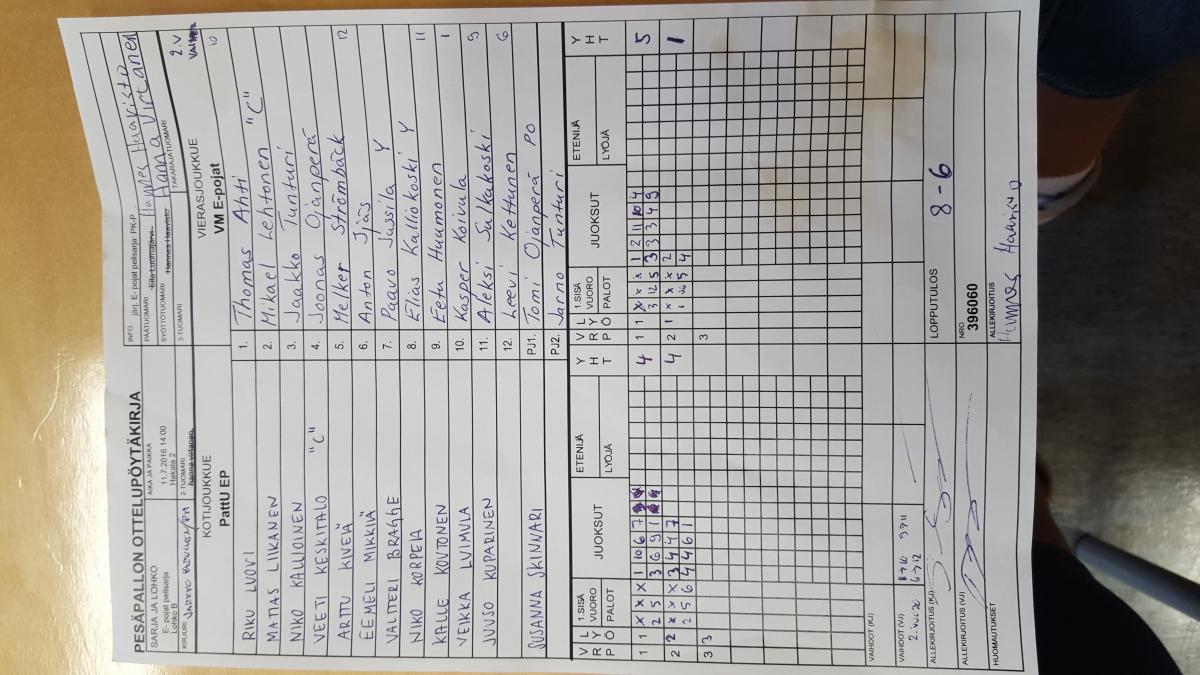 PESÄPALLON OTTELUPÖYTÄKIRJA
SARJA JA LOHKO
E- pojat pelisarja
Lohko B
AIKA JA PAIKKA
11.7.2016 14:00
Hakala 2
INFO järj. E- pojat pelisarja: PK-P
PÄÄTUOMARI
Hannes Haavisto
KIRJURI
2-TUOMARI
SYÖTTÖTUOMARI
Hannes Haavisto
Hanna Virtanen
3-TUOMARI
TAKARAJATUOMARI
KOTIJOUKKUE
PattU EP
VIERASJOUKKUE
VM E-pojat
2.V
RIKU LUOVI
1. Thomas Ahti 10
MATIAS LIIKANEN
2. Mikael Lehtonen "C"
NIKO KALLIOINEN
3. Jaakko Tunturi
VEETI KESKITALO "C"
4. Joonas Ojanperä
ARTTU KIVELÄ
5. Melker Strömbäck 12
EEMELI MIKKILÄ
6. Anton Ijäs
VALTTERI BRAGHE
7. Paavo Jussila Y
NIKO KORPELA
8. Elias Kalliokoski Y 11
KALLE KOUTONEN
9. Eetu Huumonen 1
VEIKKA LUIMULA
10. Kasper Koivula 9
JUUSO KUPARINEN
11. Aleksi Sulkakoski
12. Leevi Kettunen 6
SUSANNA SKINNARI
PJ1. Tomi Ojanperä PO
PJ2. Jarno Tunturi
V R P
L Y Ö
1.SISÄ VUORO
PALOT
JUOKSUT
ETENIJÄ
LYÖJÄ
Y H T
V R P
L Y Ö
1.SISÄ VUORO
PALOT
JUOKSUT
ETENIJÄ
LYÖJÄ
Y H T
1 1 X X X 1 10 6 7 4
2 5 5 3 6 9 1
1 1 X X X 1 2 11 10 4 5
3 12 5 3 3 3 4 5
2 2 X X X 3 4 4 7 4
2 5 6 4 4 6 1
2 1 X X X 2 1
3 3
3
VAIHDOT (KJ)
VAIHDOT (VJ)
2.vuoro
ALLEKIRJOITUS (KJ)
LOPPUTULOS
8 - 6
ALLEKIRJOITUS (VJ)
NRO
396060
HUOMAUTUKSET
ALLEKIRJOITUS
Hannes Haavisto